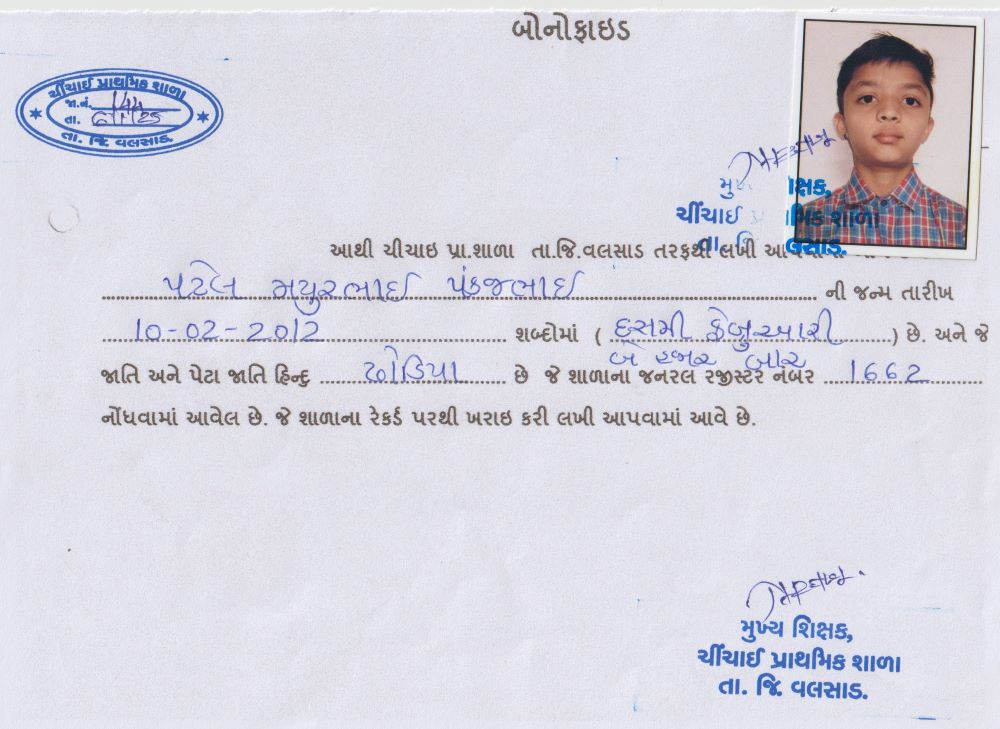 બોનોફાઇડ
ચીંચાઈ પ્રાથમિક શાળા
જા.નં. 144
તા.
તા. જિ. વલસાડ.
મુખ્ય શિક્ષક,
ચીંચાઈ પ્રાથમિક શાળા
તા. જિ. વલસાડ.
આથી ચીચાઇ પ્રા.શાળા તા.જિ.વલસાડ તરફથી લખી
પટેલ મયુરભાઈ પંકજભાઈ ની જન્મ તારીખ
10-02-2012 શબ્દોમાં ( દસમી ફેબ્રુઆરી ) છે. અને જે
બે હજાર બાર
જાતિ અને પેટા જાતિ હિન્દુ ઢોડિયા છે જે શાળાના જનરલ રજીસ્ટર નંબર 1662
નોંધવામાં આવેલ છે. જે શાળાના રેકર્ડ પરથી ખરાઇ કરી લખી આપવામાં આવે છે.
મુખ્ય શિક્ષક,
ચીંચાઈ પ્રાથમિક શાળા
તા. જિ. વલસાડ.